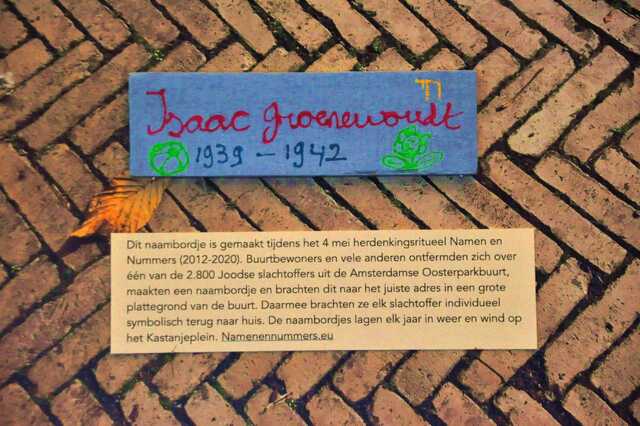 Isaac Groenewoudt
1939 - 1942
Dit naambordje is gemaakt tijdens het 4 mei herdenkingsritueel Namen en
Nummers (2012-2020). Buurtbewoners en vele anderen ontfermden zich over
één van de 2.800 Joodse slachtoffers uit de Amsterdamse Oosterparkbuurt,
maakten een naambordje en brachten dit naar het juiste adres in een grote
plattegrond van de buurt. Daarmee brachten ze elk slachtoffer individueel
symbolisch terug naar huis. De naambordjes lagen elk jaar in weer en wind op
het Kastanjeplein. Namenennummers.eu